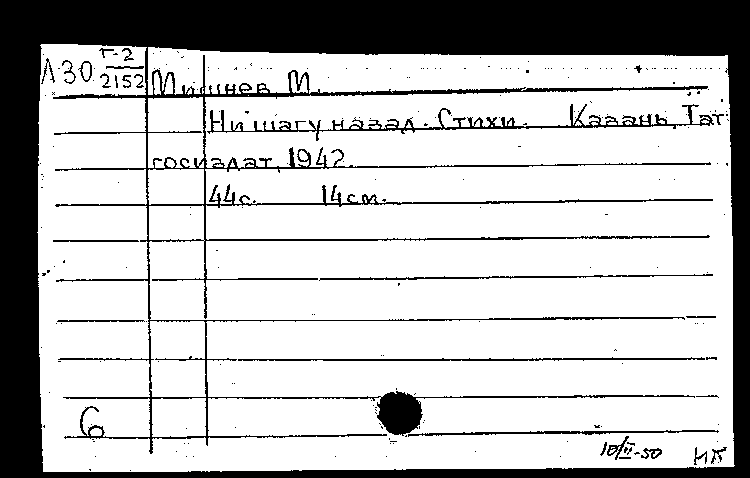 Л30 Г-2
2152 Мишнев М.
Ни шагу назад. Стихи. Казань, Тат
госиздат, 1942.
44с. 14см.
6
10/II-50 НБ